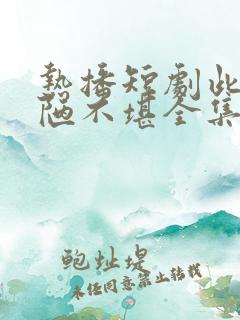 熱播短劇此
陋不堪全集
鮑址堤
未经同意禁止转载